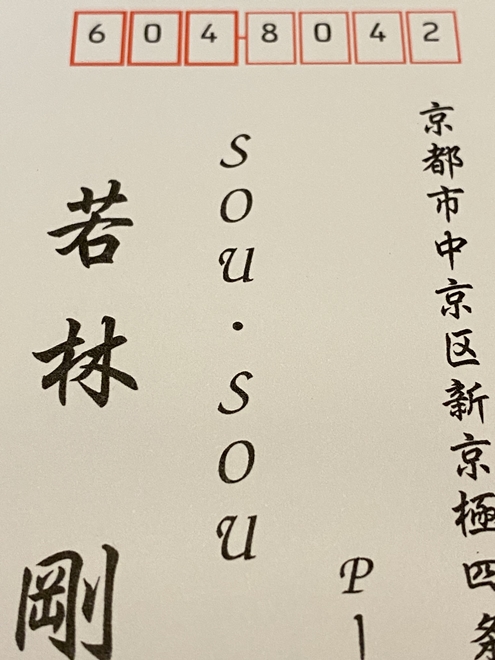 604-8042
京都市中京区新京極四条
Pー
SOU・SOU
若林 剛